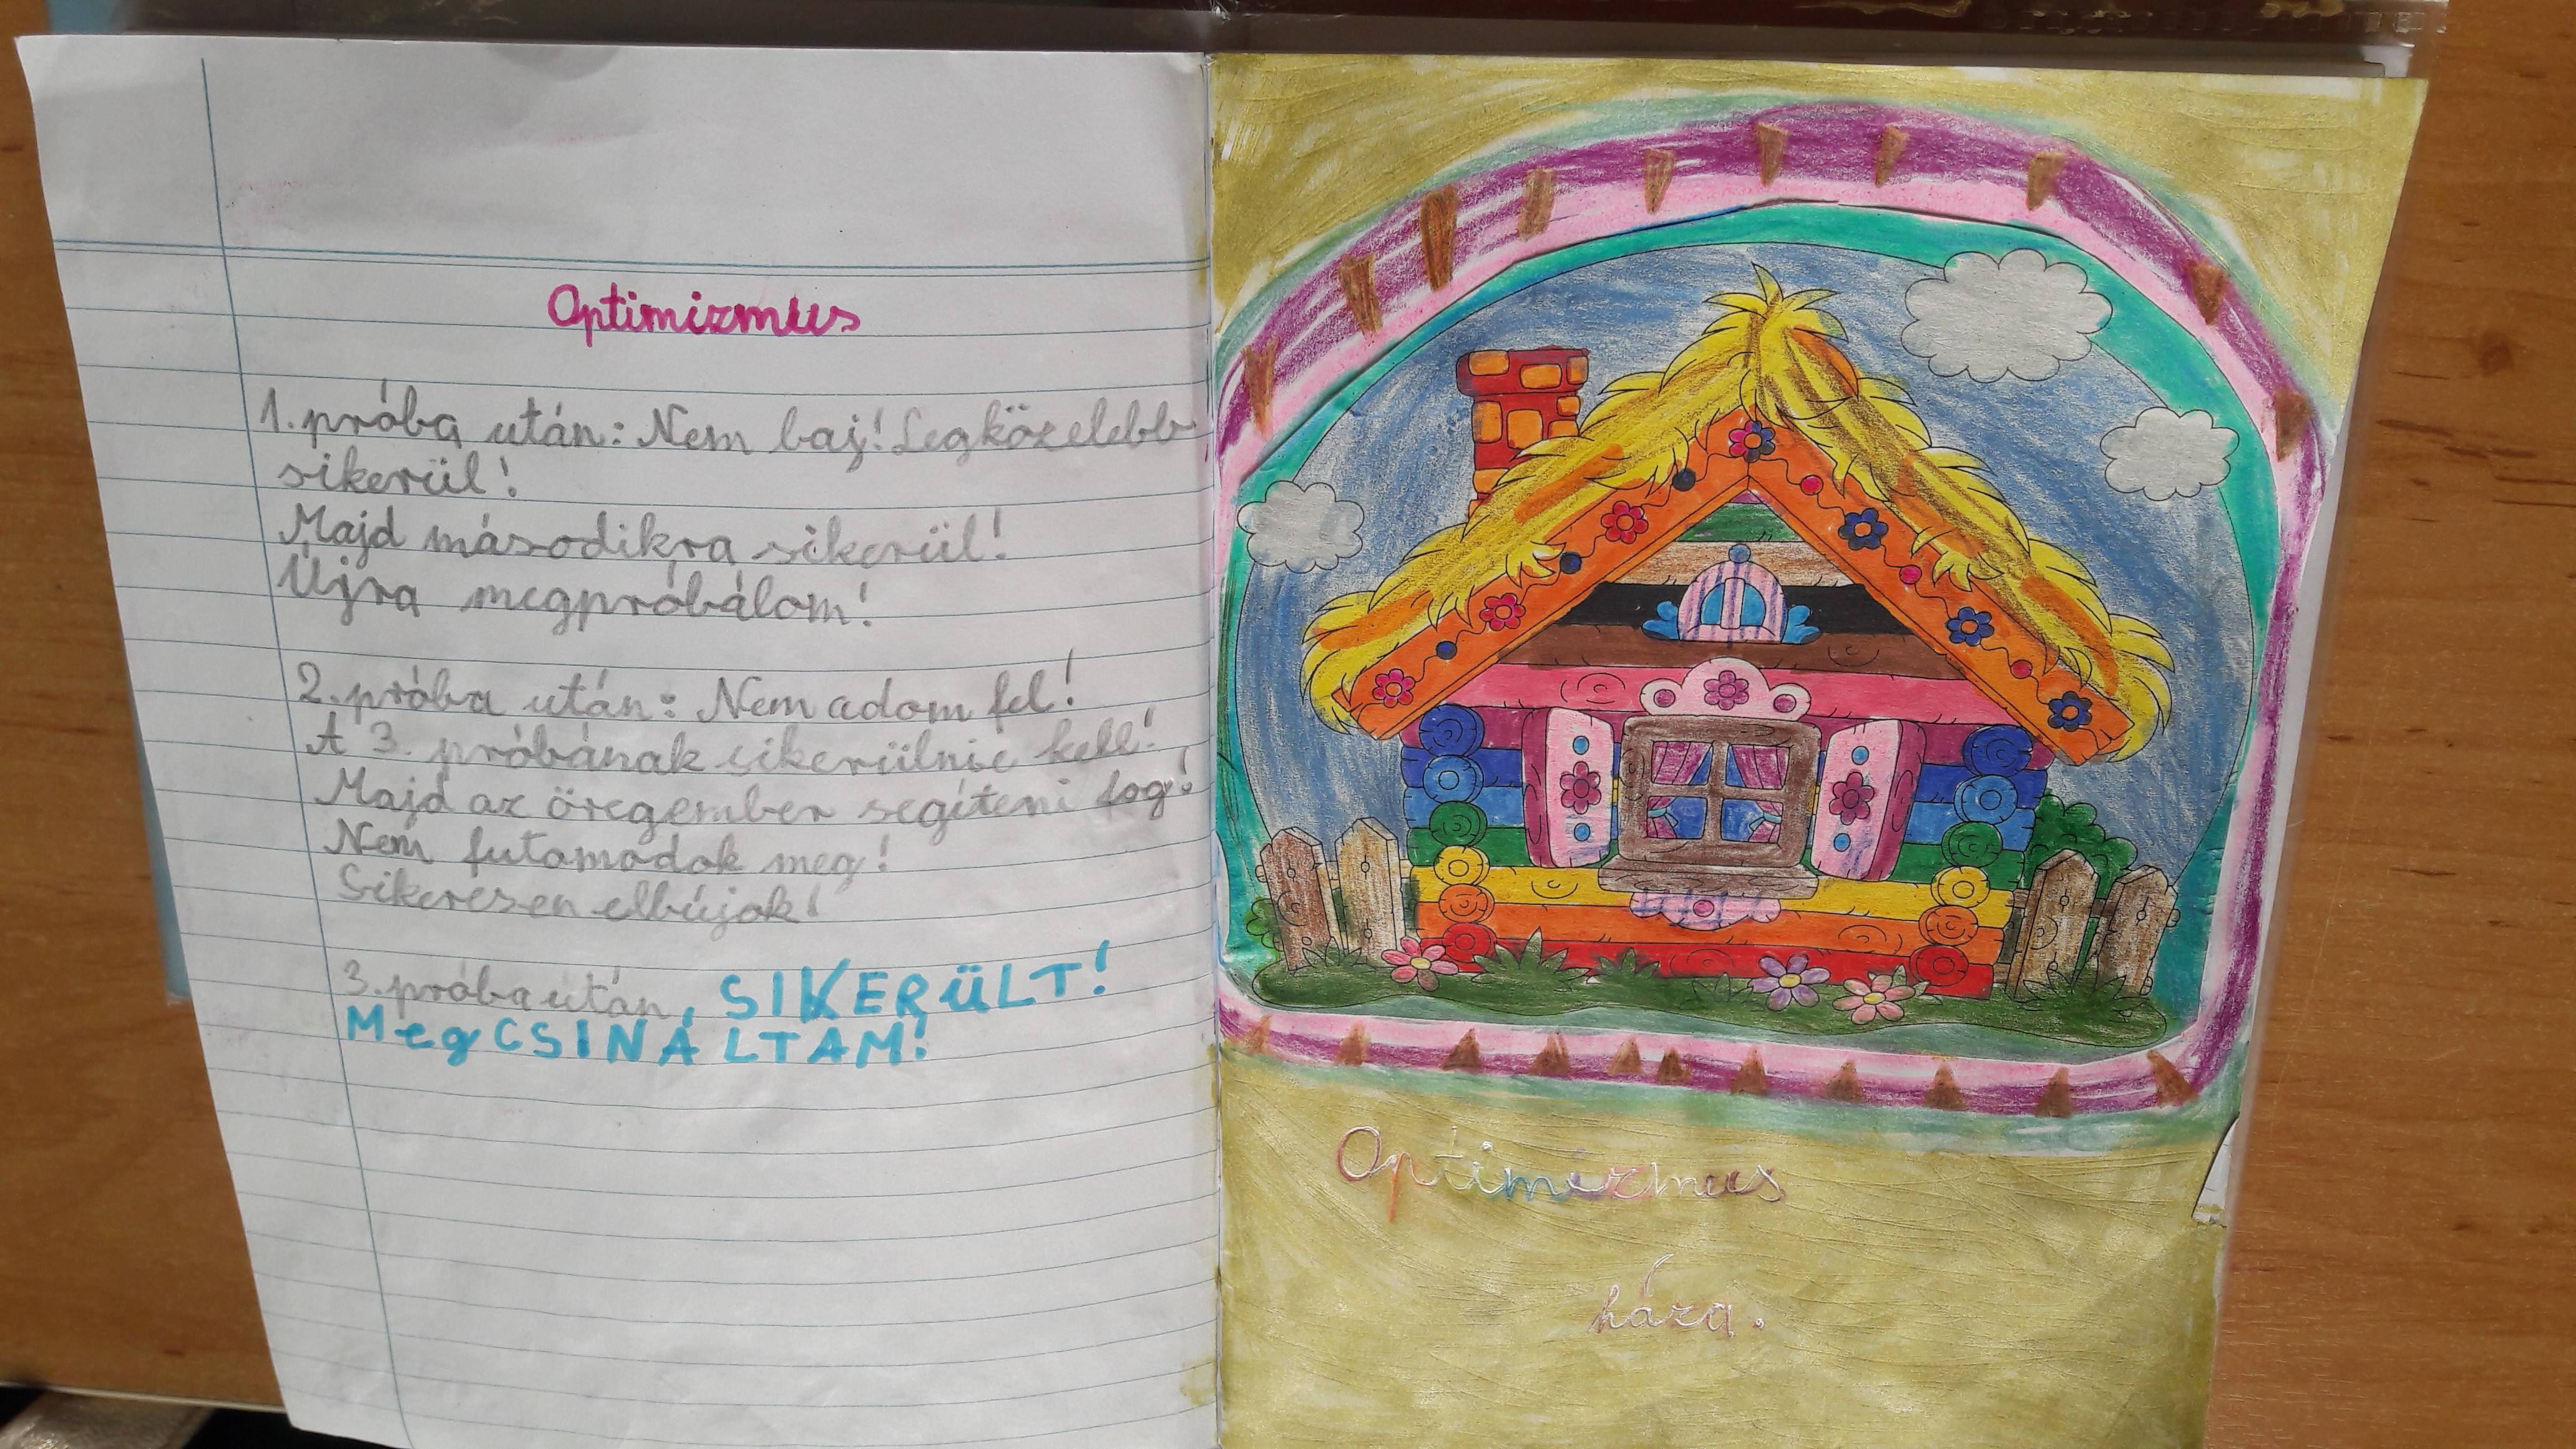 Optimizmus
1. próba után: Nem baj! Legközelebb
sikerül!
Majd másodikra sikerül!
Újra megpróbálom!
2. próba után: Nem adom fel!
A 3. próbának sikerülnie kell!
Majd az öregember segíteni fog!
Nem futamodok meg!
Sikeresen elbújok!
3. próba után, SIKERÜLT!
MegCSINÁLTAM!
Optimizmus
háza.